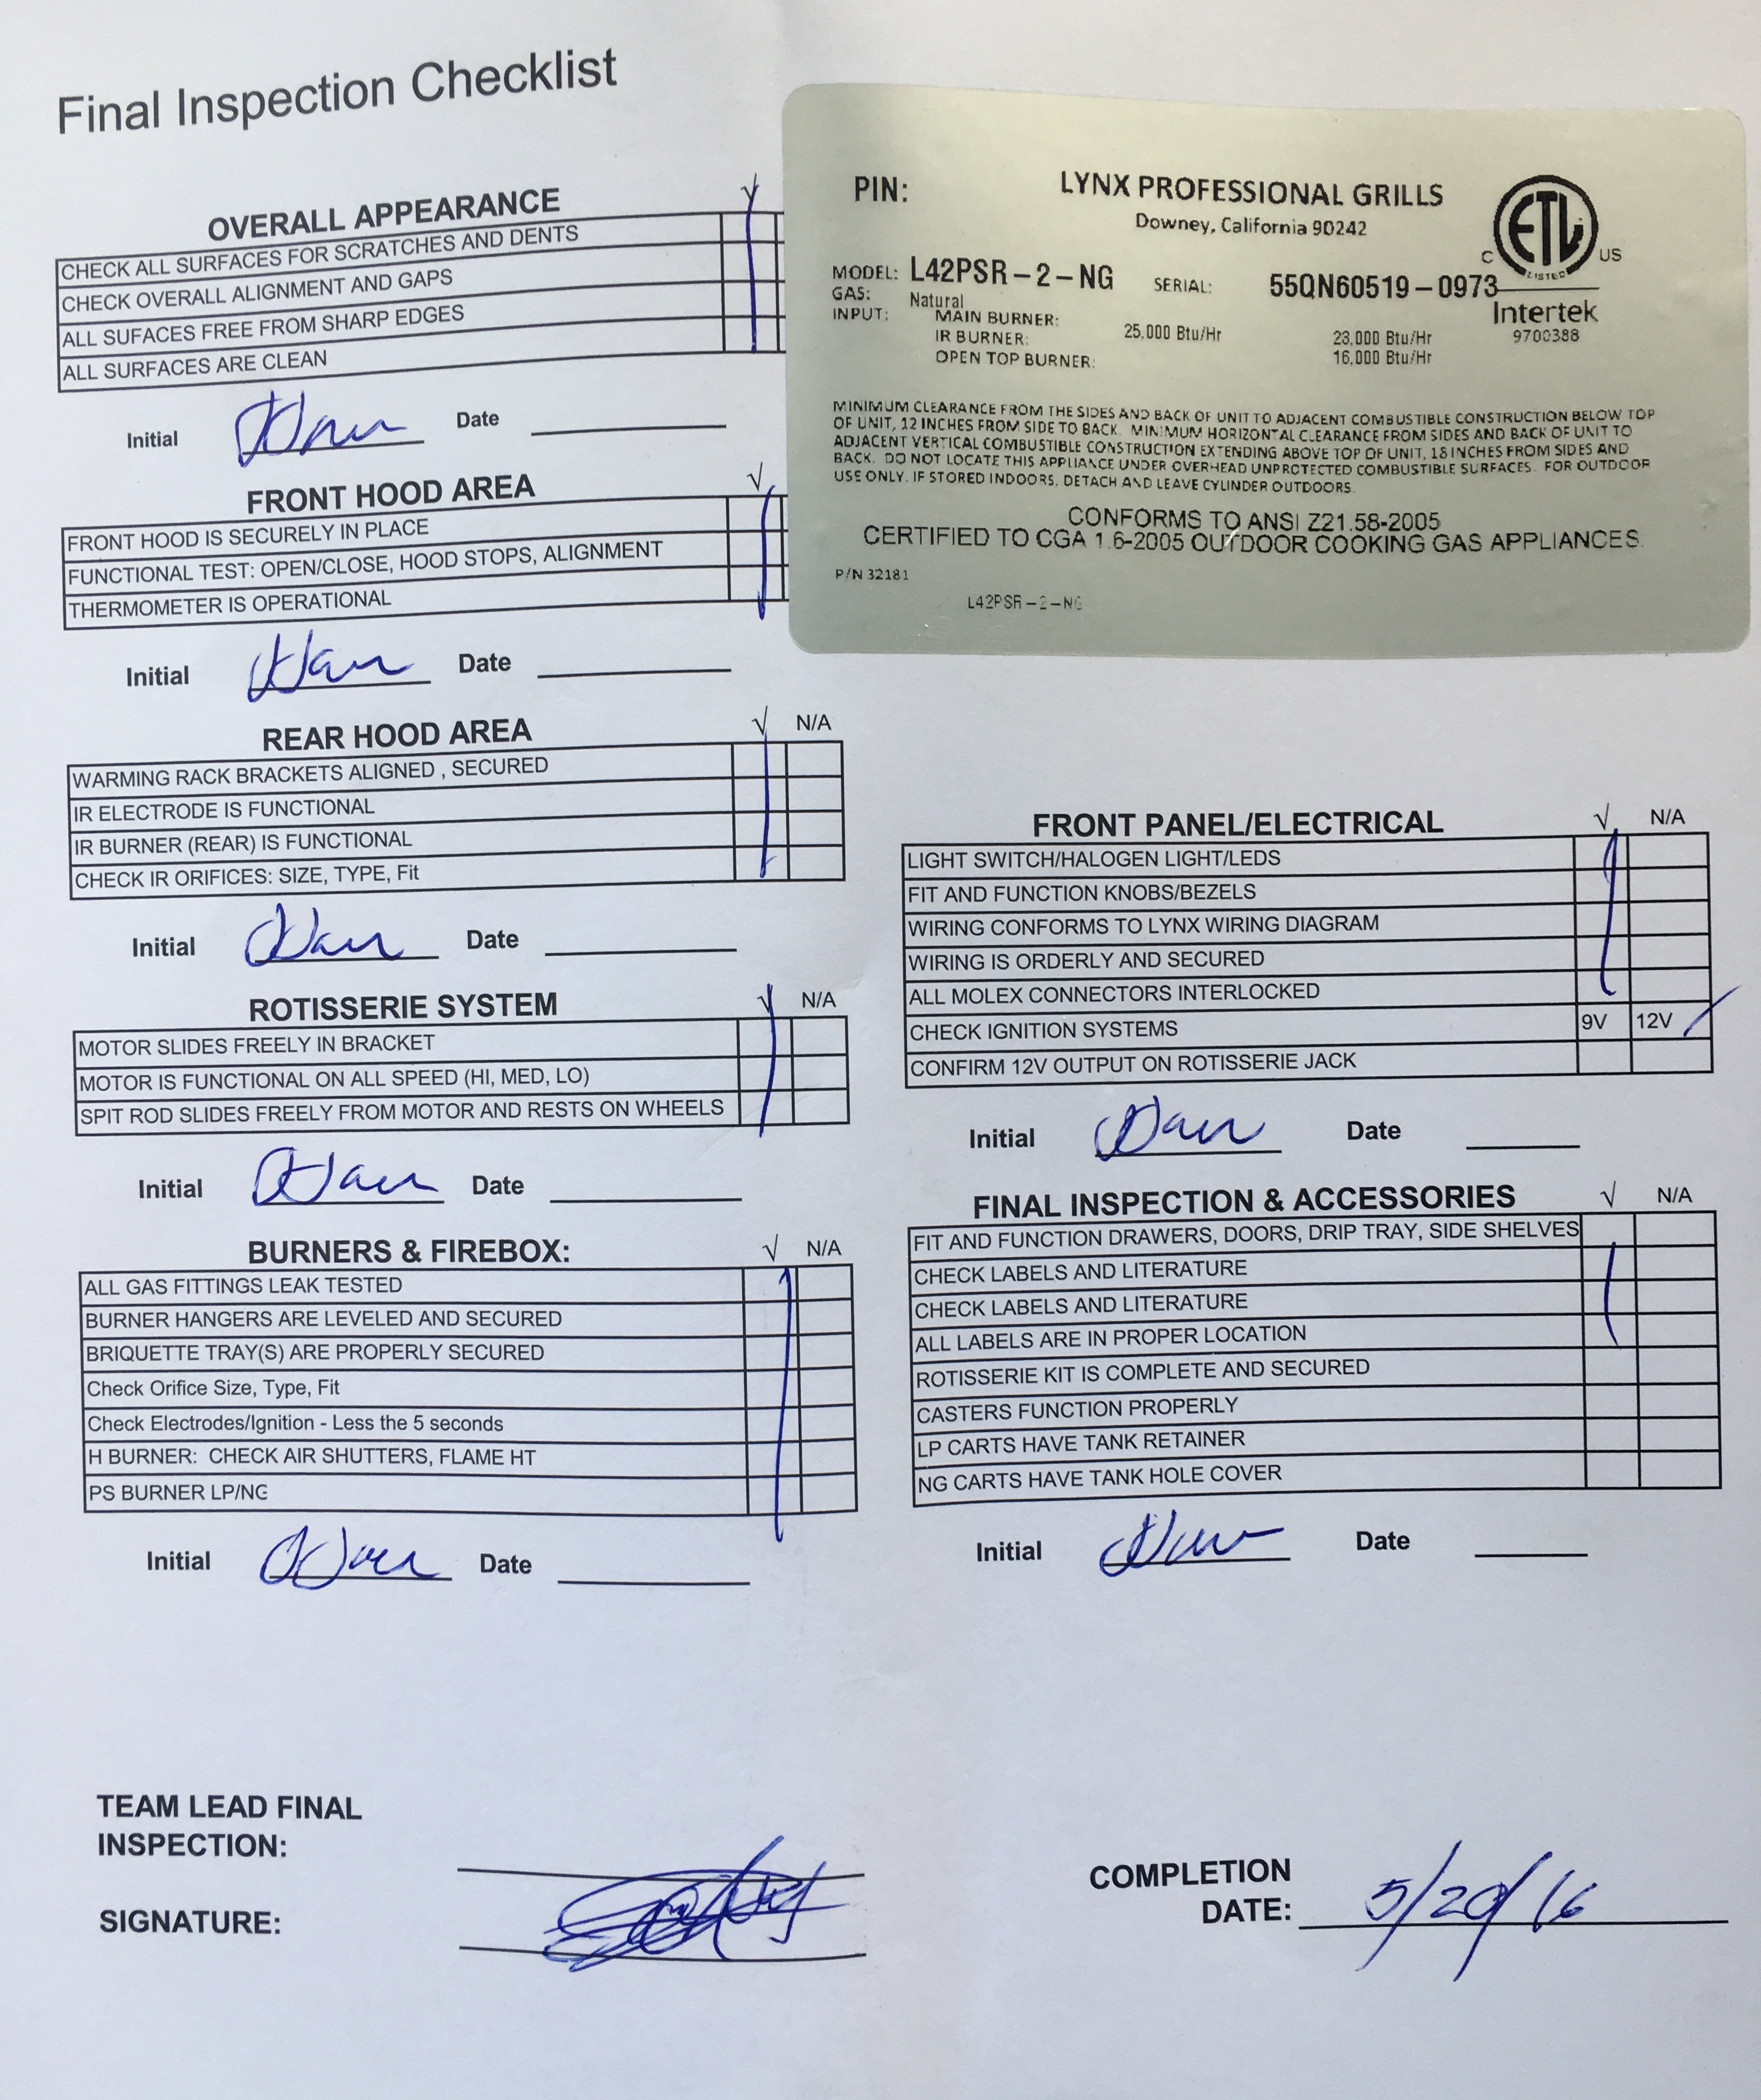 Final Inspection Checklist
OVERALL APPEARANCE √
CHECK ALL SURFACES FOR SCRATCHES AND DENTS
CHECK OVERALL ALIGNMENT AND GAPS
ALL SUFACES FREE FROM SHARP EDGES
ALL SURFACES ARE CLEAN
Initial Date
FRONT HOOD AREA √
FRONT HOOD IS SECURELY IN PLACE
FUNCTIONAL TEST: OPEN/CLOSE, HOOD STOPS, ALIGNMENT
THERMOMETER IS OPERATIONAL
Initial Date
REAR HOOD AREA √ N/A
WARMING RACK BRACKETS ALIGNED , SECURED
IR ELECTRODE IS FUNCTIONAL
IR BURNER (REAR) IS FUNCTIONAL
CHECK IR ORIFICES: SIZE, TYPE, Fit
Initial Date
ROTISSERIE SYSTEM √ N/A
MOTOR SLIDES FREELY IN BRACKET
MOTOR IS FUNCTIONAL ON ALL SPEED (HI, MED, LO)
SPIT ROD SLIDES FREELY FROM MOTOR AND RESTS ON WHEELS
Initial Date
BURNERS & FIREBOX: √ N/A
ALL GAS FITTINGS LEAK TESTED
BURNER HANGERS ARE LEVELED AND SECURED
BRIQUETTE TRAY(S) ARE PROPERLY SECURED
Check Orifice Size, Type, Fit
Check Electrodes/Ignition - Less the 5 seconds
H BURNER: CHECK AIR SHUTTERS, FLAME HT
PS BURNER LP/NG
Initial Date
PIN: LYNX PROFESSIONAL GRILLS
Downey, California 90242
ETL
C US
LISTED
Intertek
9700388
MODEL: L42PSR-2-NG SERIAL: 55QN60519-0973
GAS: Natural
INPUT: MAIN BURNER: 25,000 Btu/Hr
IR BURNER: 23,000 Btu/Hr
OPEN TOP BURNER: 16,000 Btu/Hr
MINIMUM CLEARANCE FROM THE SIDES AND BACK OF UNIT TO ADJACENT COMBUSTIBLE CONSTRUCTION BELOW TOP
OF UNIT, 12 INCHES FROM SIDE TO BACK. MINIMUM HORIZONTAL CLEARANCE FROM SIDES AND BACK OF UNIT TO
ADJACENT VERTICAL COMBUSTIBLE CONSTRUCTION EXTENDING ABOVE TOP OF UNIT, 18 INCHES FROM SIDES AND
BACK. DO NOT LOCATE THIS APPLIANCE UNDER OVERHEAD UNPROTECTED COMBUSTIBLE SURFACES. FOR OUTDOOR
USE ONLY. IF STORED INDOORS, DETACH AND LEAVE CYLINDER OUTDOORS.
CONFORMS TO ANSI Z21.58-2005
CERTIFIED TO CGA 1.6-2005 OUTDOOR COOKING GAS APPLIANCES.
P/N 32181
L42PSR-2-NG
FRONT PANEL/ELECTRICAL √ N/A
LIGHT SWITCH/HALOGEN LIGHT/LEDS
FIT AND FUNCTION KNOBS/BEZELS
WIRING CONFORMS TO LYNX WIRING DIAGRAM
WIRING IS ORDERLY AND SECURED
ALL MOLEX CONNECTORS INTERLOCKED
CHECK IGNITION SYSTEMS 9V 12V
CONFIRM 12V OUTPUT ON ROTISSERIE JACK
Initial Date
FINAL INSPECTION & ACCESSORIES √ N/A
FIT AND FUNCTION DRAWERS, DOORS, DRIP TRAY, SIDE SHELVES
CHECK LABELS AND LITERATURE
CHECK LABELS AND LITERATURE
ALL LABELS ARE IN PROPER LOCATION
ROTISSERIE KIT IS COMPLETE AND SECURED
CASTERS FUNCTION PROPERLY
LP CARTS HAVE TANK RETAINER
NG CARTS HAVE TANK HOLE COVER
Initial Date
TEAM LEAD FINAL
INSPECTION:
SIGNATURE:
COMPLETION
DATE: 5/20/16